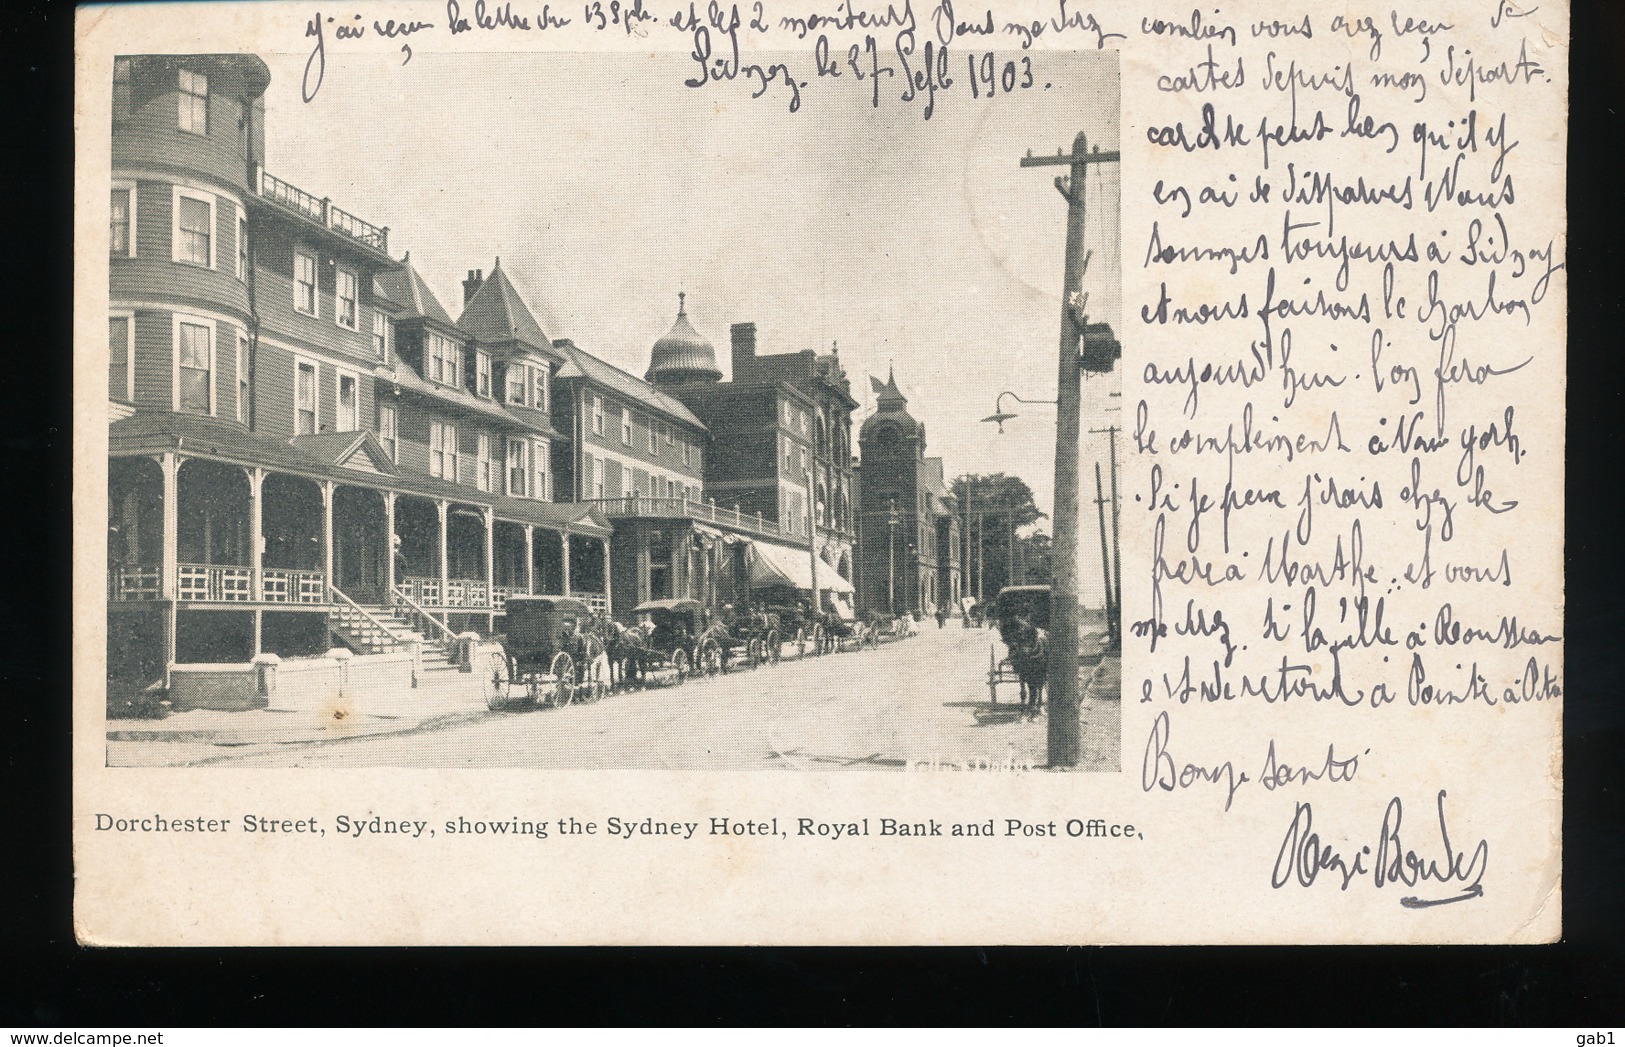 j'ai reçu la lettre du 13 Sph. et les 2 moniteurs Vous me direz combien vous avez reçu de
Sidney. le 27 Sept 1903.
cartes depuis mon départ.
car il se peut bien qu'il y
en ai de disparues Nous
sommes toujours à Sidney
et nous faisons le charbon
aujourd'hui. l'on fera
le complément à New york.
Si je peux j'irais chez le
frère à Marthe.. et vous
me direz. Si la fille à Rousseau
est de retour à Pointe à Pitre
Bonne santé
Dorchester Street, Sydney, showing the Sydney Hotel, Royal Bank and Post Office,
delcampe.net
gab1